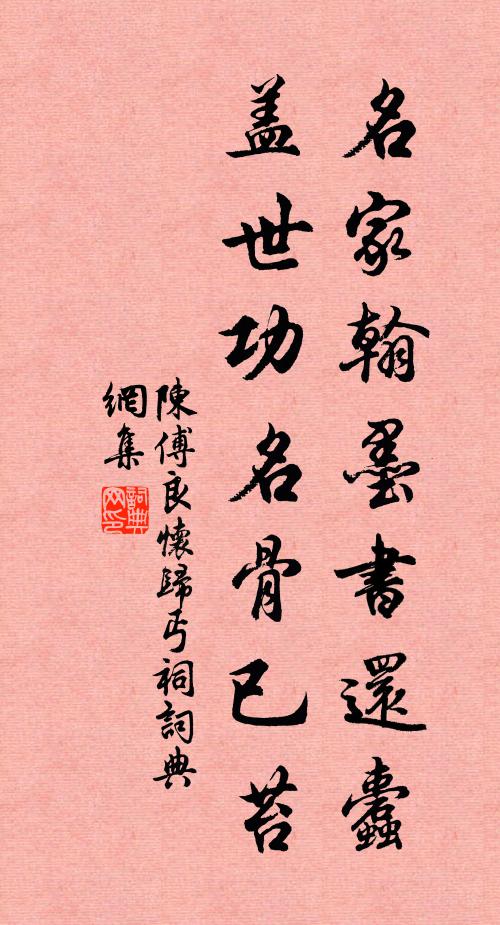 名家翰墨書還蠹
盖世功名骨已苔
陳傅良懷歸丐祠詞典
網集
詞典网印